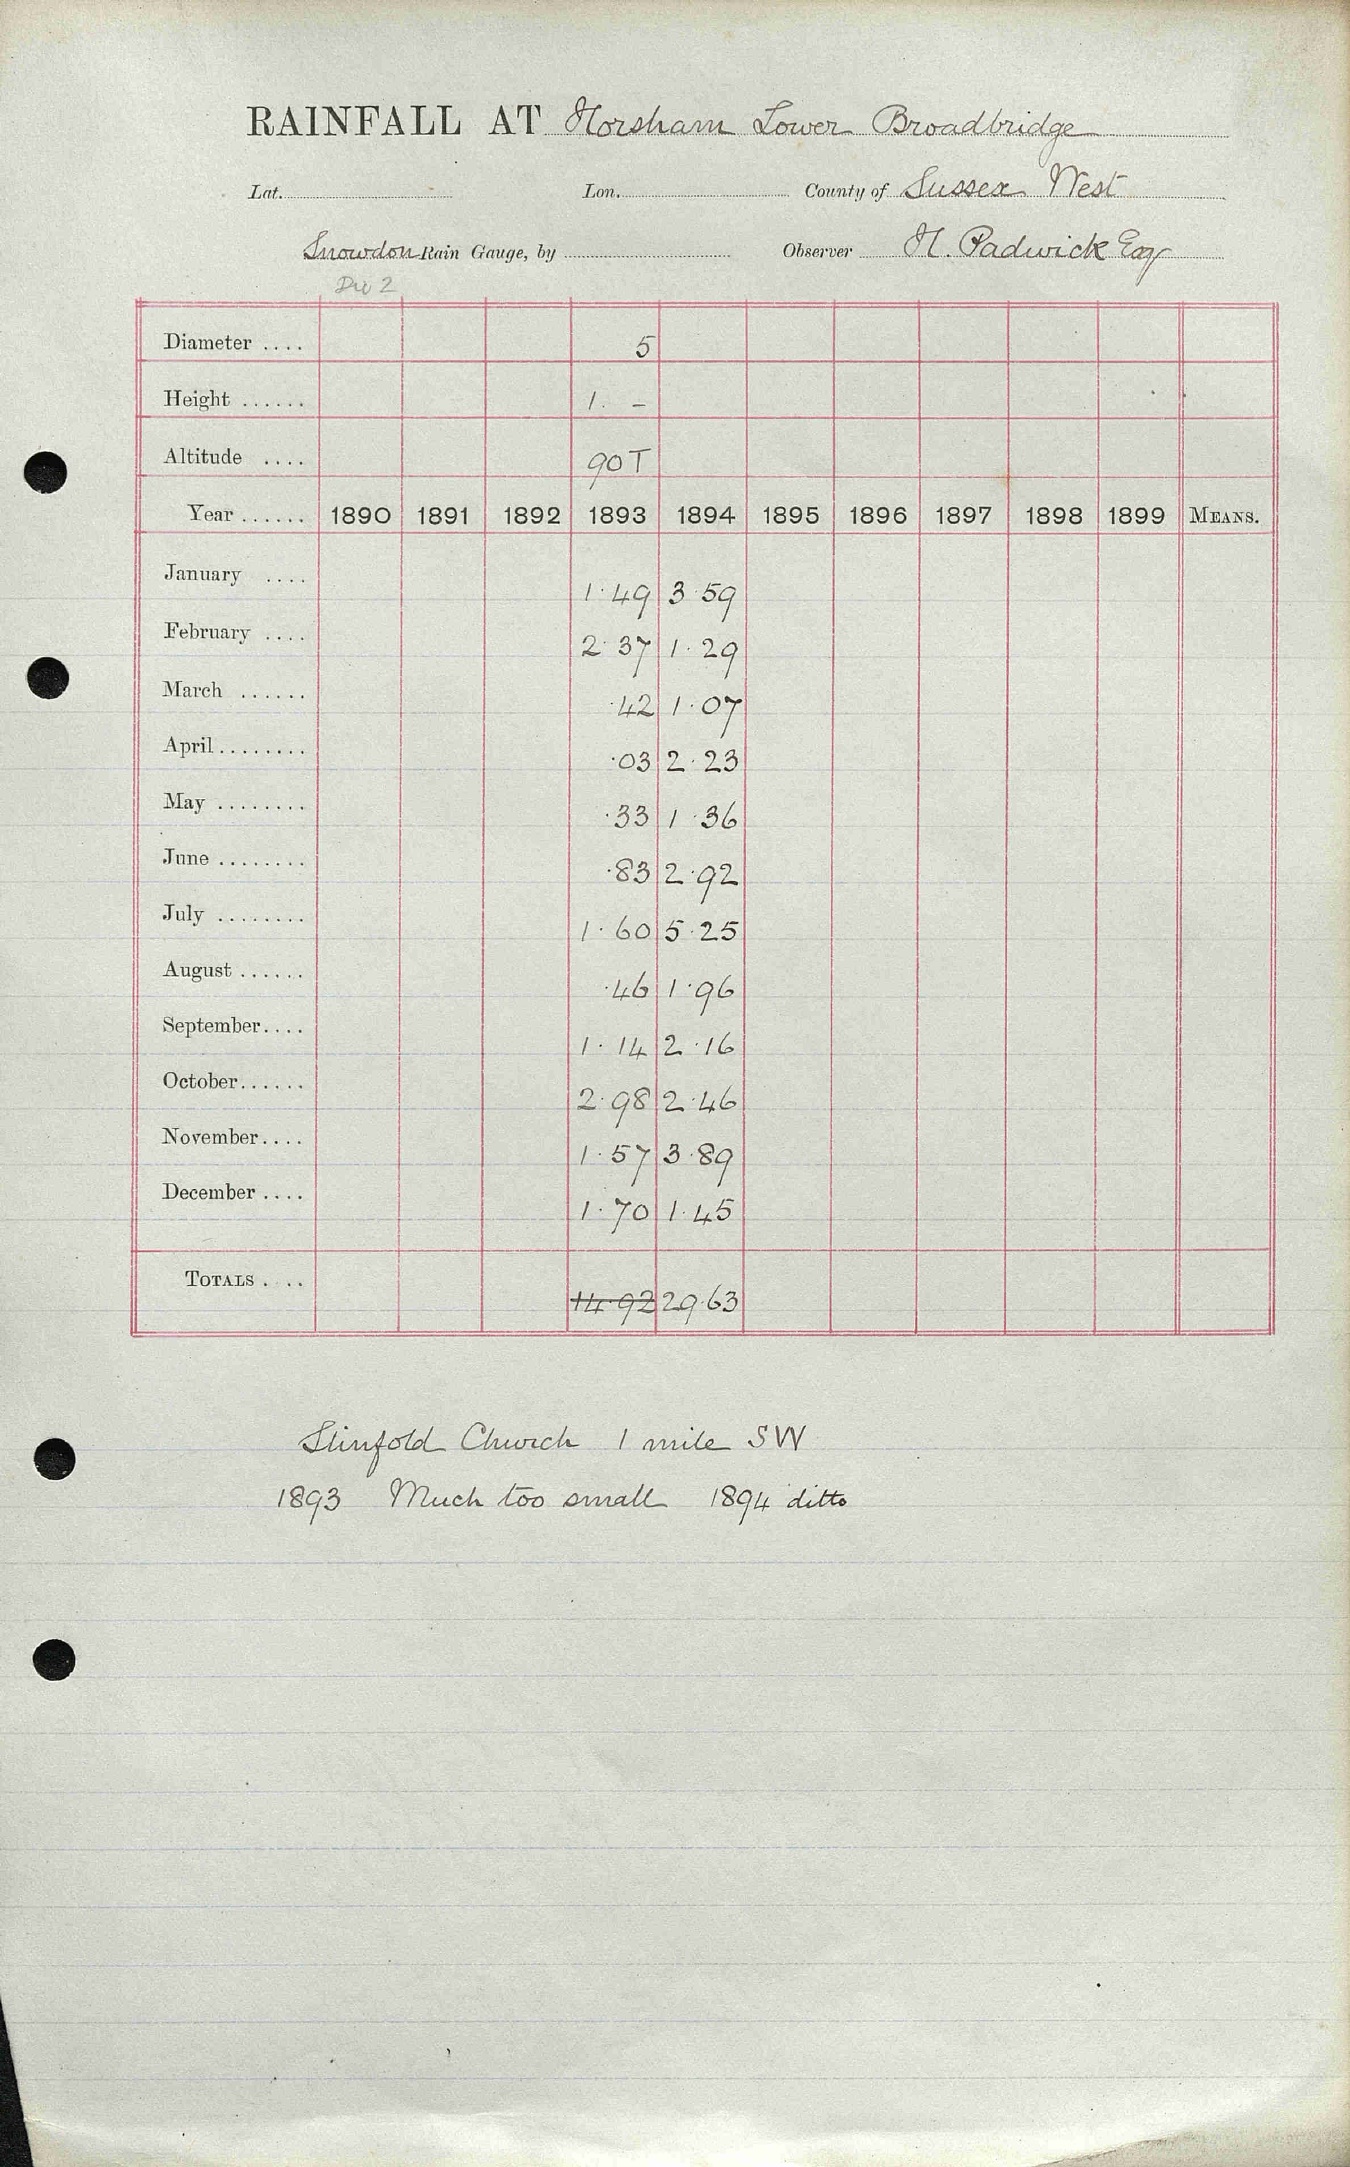 RAINFALL AT Horsham Lower Broadbridge
Lat. Lon. County of Sussex West
Snowdon Rain Gauge, by Observer H. Padwick Esq
Div 2
Diameter .... 5
Height ...... 1. –
Altitude .... 90T
Year ...... 1890 1891 1892 1893 1894 1895 1896 1897 1898 1899 MEANS.
January .... 1.49 3.59
February .... 2.37 1.29
March ...... .42 1.07
April ........ .03 2.23
May ........ .33 1.36
June ........ .83 2.92
July ........ 1.60 5.25
August ...... .46 1.96
September.... 1.14 2.16
October...... 2.98 2.46
November.... 1.57 3.89
December .... 1.70 1.45
TOTALS .... 14.92 29.63
Slinfold Church 1 mile SW
1893 Much too small 1894 ditto